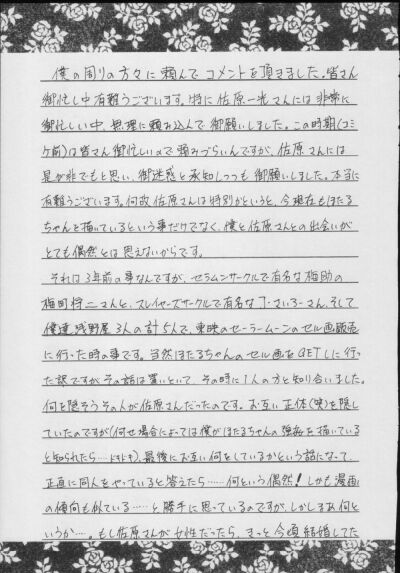 僕の周りの方々に頼んでコメントを頂きました。皆さん
御忙し中有難うございます。特に佐原一光さんには非常に
御忙しい中、無理に頼み込んで御願いしました。この時期(コミ
ケ前)は皆さん御忙しいので頼みづらいんですが、佐原さんには
是が非でもと思い、御迷惑と承知しつつも御願いしました。本当に
有難うございます。何故佐原さんは特別かというと、今現在もほたる
ちゃんを描いているという事だけでなく、僕と佐原さんとの出会いが
とても偶然とは思えないからです。
それは3年前の事なんですが、セラムンサークルで有名な梅助の
梅町將二さんと、スレイヤーズサークルで有名なJ・さいろーさん、そして
僕達、浅野屋3人の計5人で、東映のセーラームーンのセル画販売
に行った時の事です。当然ほたるちゃんのセル画をGETしに行っ
た訳ですがその話は置いといて、その時に1人の方と知り合いました。
何を隠そうその人が佐原さんだったのです。お互い正体(笑)を隠し
ていたのですが(何せ場合によっては僕がほたるちゃんの強姦を描いている
と知られたら…ドキドキ)、最後にお互い何をしているかという話になって、
正直に同人をやっていると答えたら……何という偶然!しかも漫画
の傾向も似ている……と勝手に思っているのですが、しかしまあ何と
いうか…。もし佐原さんが女性だったら、きっと今頃結婚してた